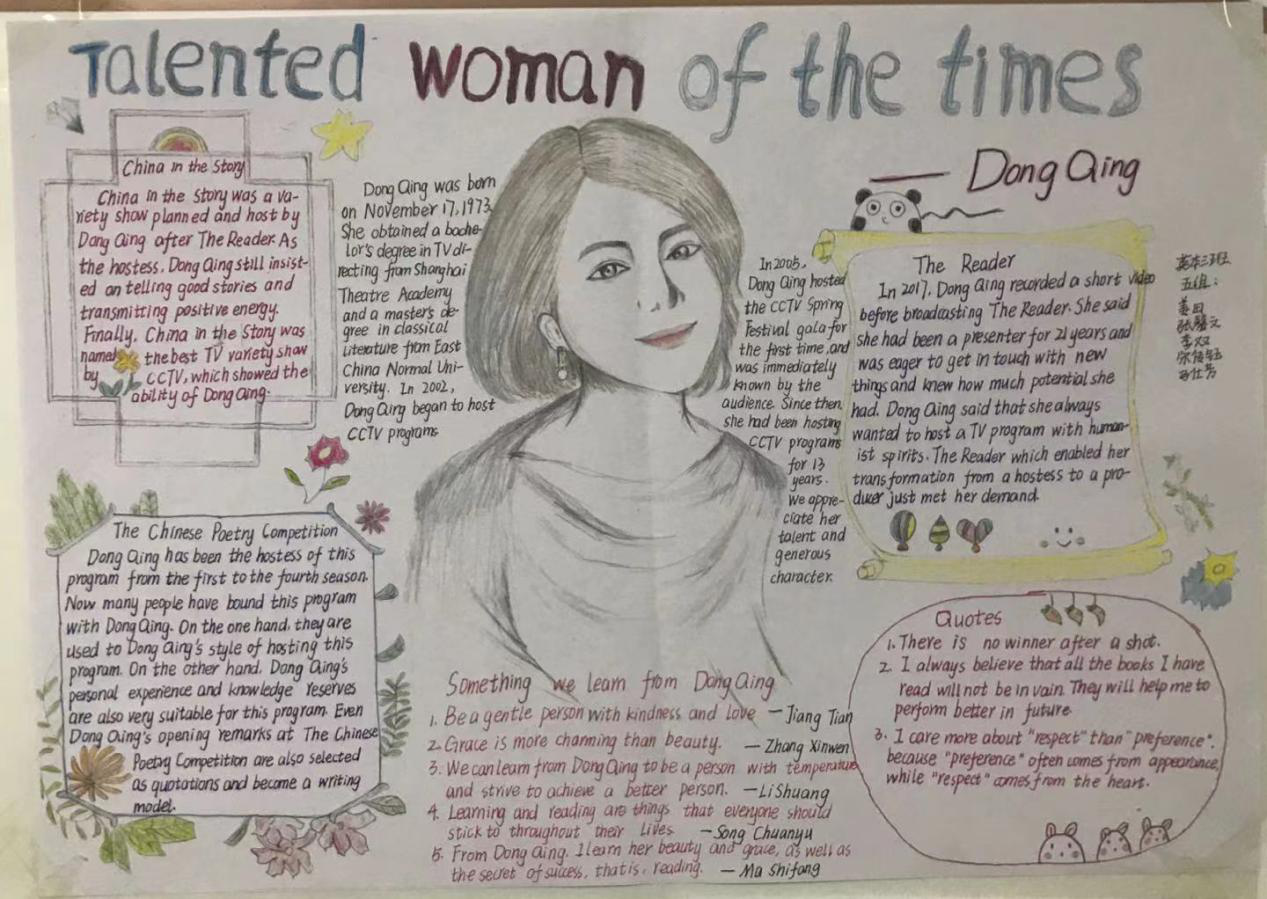 Talented woman of the times
— Dong Qing
China in the Story
China in the Story was a va-
riety show planned and host by
Dong Qing after The Reader. As
the hostess, Dong Qing still insist-
ed on telling good stories and
transmitting positive energy.
Finally, China in the Story was
named the best TV variety show
by CCTV, which showed the
ability of Dong Qing.
Dong Qing was born
on November 17,1973.
She obtained a bache-
lor's degree in TV di-
recting from Shanghai
Theatre Academy
and a master's de-
gree in classical
literature from East
China Normal Uni-
versity. In 2002,
Dong Qing began to host
CCTV programs
In 2005,
Dong Qing hosted
the CCTV Spring
Festival gala for
the first time, and
was immediately
known by the
audience. Since then,
she had been hosting
CCTV programs
for 13
years.
We appre-
ciate her
talent and
generous
character.
The Reader
In 2017, Dong Qing recorded a short video
before broadcasting The Reader. She said
she had been a presenter for 21 years and
was eager to get in touch with new
things and knew how much potential she
had. Dong Qing said that she always
wanted to host a TV program with human-
ist spirits. The Reader which enabled her
transformation from a hostess to a pro-
ducer just met her demand.
五组:
姜田
李双
The Chinese Poetry Competition
Dong Qing has been the hostess of this
program from the first to the fourth season.
Now many people have bound this program
with Dong Qing. On the one hand, they are
used to Dong Qing's style of hosting this
program. On the other hand, Dong Qing's
personal experience and knowledge reserves
are also very suitable for this program. Even
Dong Qing's opening remarks at The Chinese
Poetry Competition are also selected
as quotations and become a writing
model.
Something we learn from Dong Qing
1. Be a gentle person with kindness and love — Jiang Tian
2. Grace is more charming than beauty. — Zhang Xinwen
3. We can learn from Dong Qing to be a person with temperature
and strive to achieve a better person. — Li Shuang
4. Learning and reading are things that everyone should
stick to throughout their lives — Song Chuanyu
5. From Dong Qing, I learn her beauty and grace, as well as
the secret of success, that is, reading. — Ma Shifang
Quotes
1. There is no winner after a shot.
2. I always believe that all the books I have
read will not be in vain. They will help me to
perform better in future.
3. I care more about "respect" than "preference",
because "preference" often comes from appearance,
while "respect" comes from the heart.